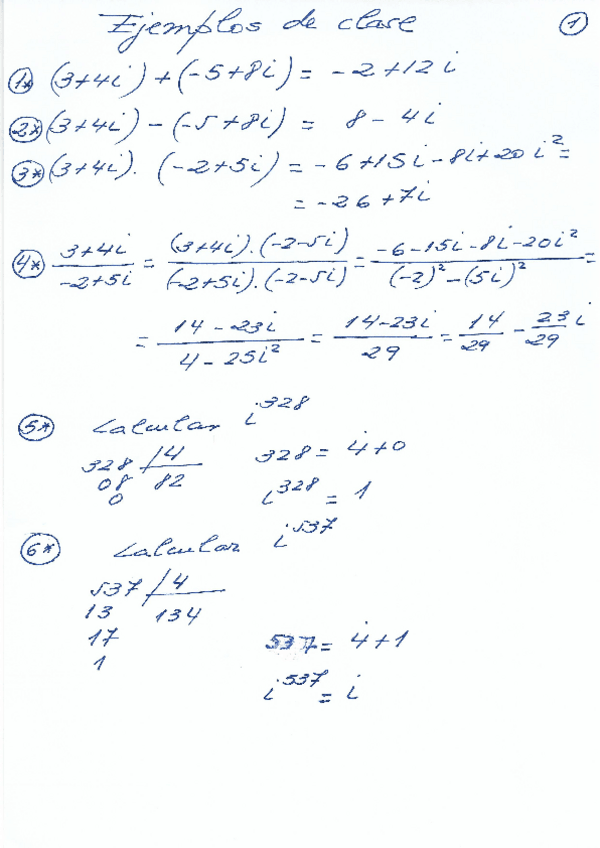 Ejemplos de clase ①
1* (3+4i)+(-5+8i) = -2+12i
2* (3+4i) - (-5+8i) = 8-4i
3* (3+4i). (-2+5i) = -6+15i-8i+20i² =
= -26+7i
4* 3+4i/-2+5i = (3+4i).(-2-5i)/(-2+5i).(-2-5i) = -6-15i-8i-20i²/(-2)²-(5i)² =
= 14-23i/4-25i² = 14-23i/29 = 14/29 - 23/29 i
5* Calcular i³²⁸
328 /4 328 = 4̇+0
08 82
0 i³²⁸ = 1
6* Calcular i⁵³⁷
537 /4
13 134
17 537 = 4̇+1
1
i⁵³⁷ = i